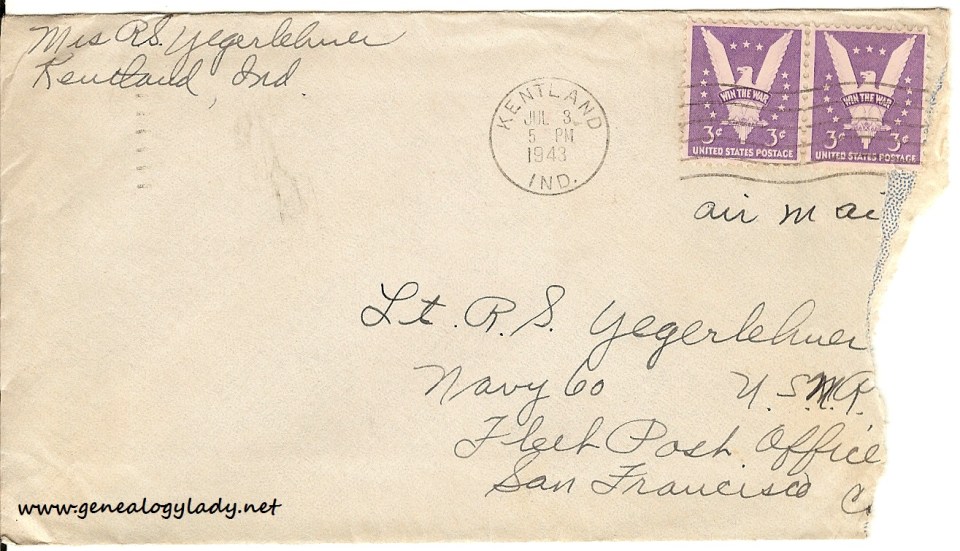 Mrs R.S. Yegerlehner
Kentland, Ind.
KENTLAND
JUL 3
5 PM
1943
IND.
WIN THE WAR
3¢ 3¢
UNITED STATES POSTAGE
WIN THE WAR
3¢ 3¢
UNITED STATES POSTAGE
air mai
Lt. R.S. Yegerlehner
Navy 60 U.S.N.R.
Fleet Post Office
San Francisco C
www.genealogylady.net